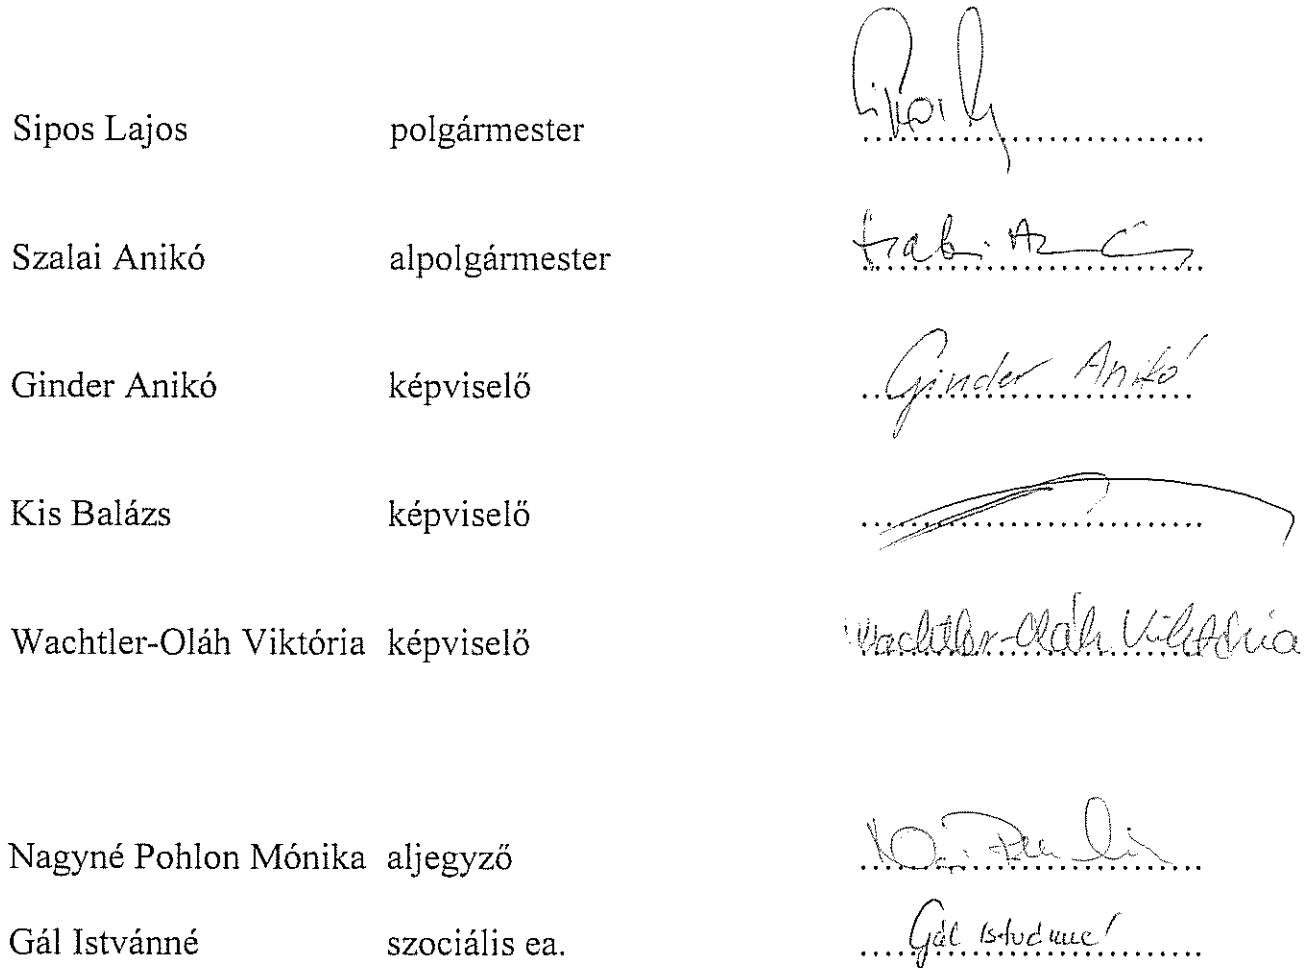 Sipos Lajos polgármester
Szalai Anikó alpolgármester
Ginder Anikó képviselő Ginder Anikó
Kis Balázs képviselő
Wachtler-Oláh Viktória képviselő Wachtler-Oláh Viktória
Nagyné Pohlon Mónika aljegyző
Gál Istvánné szociális ea. Gál Istvánné